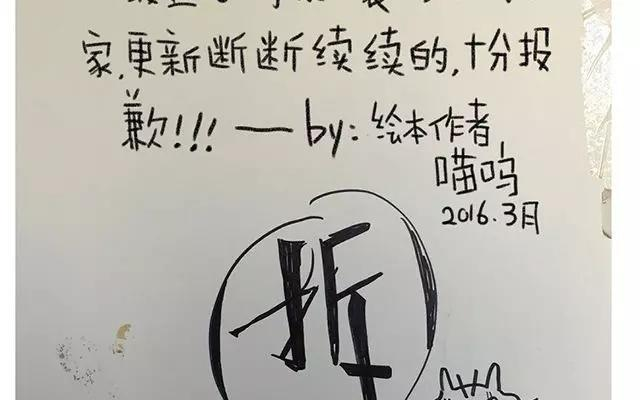 家,更新断断续续的,十分报
歉!!! — by: 绘本作者,
喵呜
2016.3月
拆